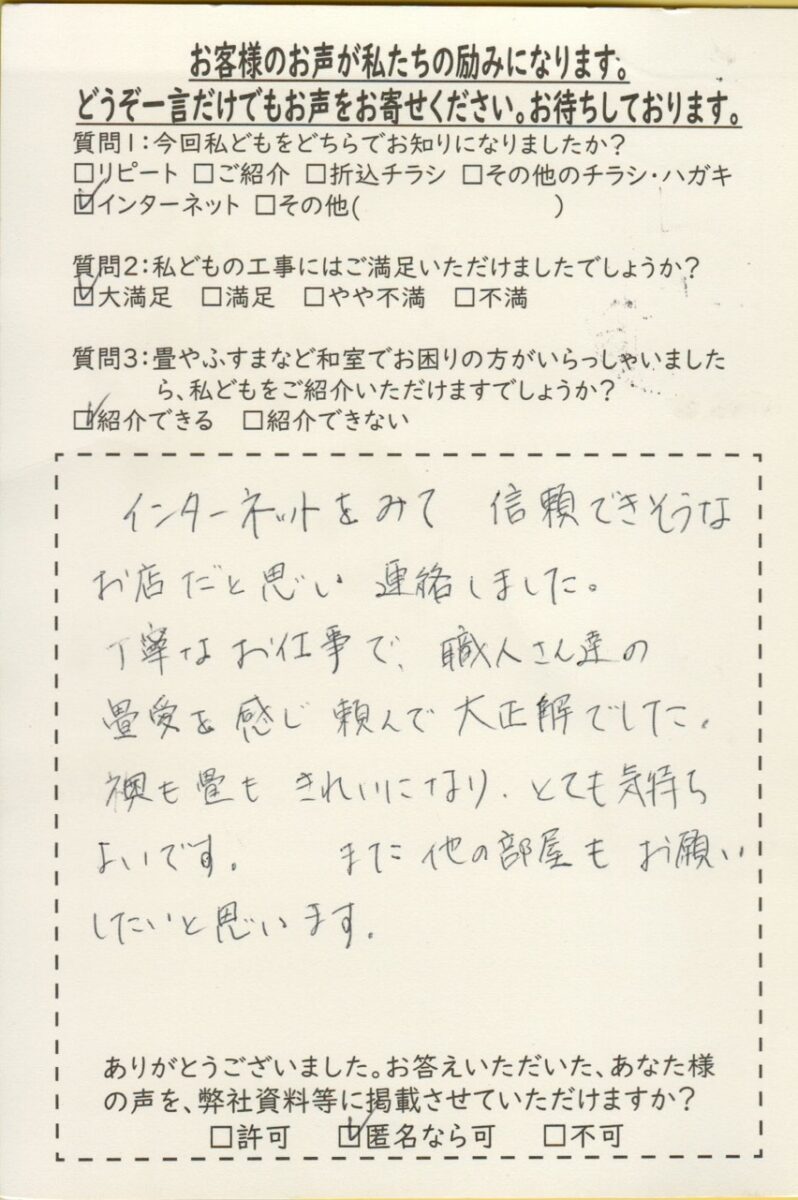 お客様のお声が私たちの励みになります。
どうぞ一言だけでもお声をお寄せください。お待ちしております。
質問1：今回私どもをどちらでお知りになりましたか？
□リピート □ご紹介 □折込チラシ □その他のチラシ・ハガキ
☑インターネット □その他(　　　　　　　　)
質問2：私どもの工事にはご満足いただけましたでしょうか？
☑大満足 □満足 □やや不満 □不満
質問3：畳やふすまなど和室でお困りの方がいらっしゃいました
ら、私どもをご紹介いただけますでしょうか？
☑紹介できる □紹介できない
インターネットをみて 信頼できそうな
お店だと思い 連絡しました。
丁寧なお仕事で、職人さん達の
畳愛を感じ 頼んで 大正解でした。
襖も畳も きれいになり、とても気持ち
よいです。 また他の部屋もお願い
したいと思います。
ありがとうございました。お答えいただいた、あなた様
の声を、弊社資料等に掲載させていただけますか？
□許可 ☑匿名なら可 □不可